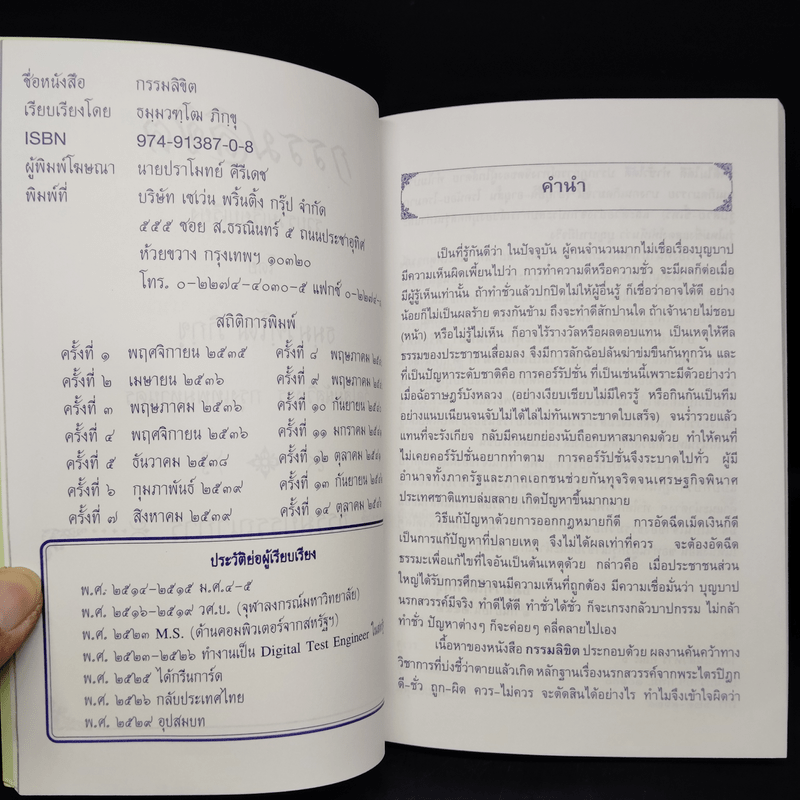 ชื่อหนังสือ กรรมลิขิต
เรียบเรียงโดย ธมฺมวฑฺโฒ ภิกฺขุ
ISBN 974-91387-0-8
ผู้พิมพ์โฆษณา นายปราโมทย์ ศีรีเดช
พิมพ์ที่ บริษัท เซเว่น พริ้นติ้ง กรุ๊ป จำกัด
๕๕๕ ซอย ส.ธรณินทร์ ๕ ถนนประชาอุทิศ
ห้วยขวาง กรุงเทพฯ ๑๐๓๒๐
โทร. ๐-๒๒๗๔-๔๐๓๐-๕ แฟกซ์ ๐-๒๒๗๔
สถิติการพิมพ์
ครั้งที่ ๑ พฤศจิกายน ๒๕๓๕ ครั้งที่ ๘ พฤษภาคม
ครั้งที่ ๒ เมษายน ๒๕๓๖ ครั้งที่ ๙ พฤษภาคม
ครั้งที่ ๓ พฤษภาคม ๒๕๓๖ ครั้งที่ ๑๐ กันยายน
ครั้งที่ ๔ พฤศจิกายน ๒๕๓๖ ครั้งที่ ๑๑ มกราคม
ครั้งที่ ๕ ธันวาคม ๒๕๓๘ ครั้งที่ ๑๒ ตุลาคม
ครั้งที่ ๖ กุมภาพันธ์ ๒๕๓๙ ครั้งที่ ๑๓ กันยายน
ครั้งที่ ๗ สิงหาคม ๒๕๓๙ ครั้งที่ ๑๔ ตุลาคม
ประวัติย่อผู้เรียบเรียง
พ.ศ. ๒๕๑๔-๒๕๑๕ ม.ศ.๔-๕
พ.ศ. ๒๕๑๖-๒๕๑๙ วศ.บ. (จุฬาลงกรณ์มหาวิทยาลัย)
พ.ศ. ๒๕๒๓ M.S. (ด้านคอมพิวเตอร์จากสหรัฐฯ)
พ.ศ. ๒๕๒๓-๒๕๒๖ ทำงานเป็น Digital Test Engineer
พ.ศ. ๒๕๒๕ ได้กรีนการ์ด
พ.ศ. ๒๕๒๖ กลับประเทศไทย
พ.ศ. ๒๕๒๙ อุปสมบท
คำนำ
เป็นที่รู้กันดีว่า ในปัจจุบัน ผู้คนจำนวนมากไม่เชื่อเรื่องบุญบาป
มีความเห็นผิดเพี้ยนไปว่า การทำความดีหรือความชั่ว จะมีผลก็ต่อเมื่อ
มีผู้รู้เห็นเท่านั้น ถ้าทำชั่วแล้วปกปิดไม่ให้ผู้อื่นรู้ ก็เชื่อว่าอาจได้ดี อย่าง
น้อยก็ไม่เป็นผลร้าย ตรงกันข้าม ถึงจะทำดีสักปานใด ถ้าเจ้านายไม่ชอบ
(หน้า) หรือไม่รู้ไม่เห็น ก็อาจไร้รางวัลหรือผลตอบแทน เป็นเหตุให้ศีล
ธรรมของประชาชนเสื่อมลง จึงมีการลักฉ้อปล้นฆ่าข่มขืนกันทุกวัน และ
ที่เป็นปัญหาระดับชาติคือ การคอร์รัปชั่น ที่เป็นเช่นนี้เพราะมีตัวอย่างว่า
เมื่อฉ้อราษฎร์บังหลวง (อย่างเงียบเชียบไม่มีใครรู้ หรือกินกันเป็นทีม
อย่างแนบเนียนจนจับไม่ได้ไล่ไม่ทันเพราะขาดใบเสร็จ) จนร่ำรวยแล้ว
แทนที่จะรังเกียจ กลับมีคนยกย่องนับถือคบหาสมาคมด้วย ทำให้คนที่
ไม่เคยคอร์รัปชั่นอยากทำตาม การคอร์รัปชั่นจึงระบาดไปทั่ว ผู้มี
อำนาจทั้งภาครัฐและภาคเอกชนช่วยกันทุจริตจนเศรษฐกิจพินาศ
ประเทศชาติแทบล่มสลาย เกิดปัญหาขึ้นมากมาย
วิธีแก้ปัญหาด้วยการออกกฎหมายก็ดี การอัดฉีดเม็ดเงินก็ดี
เป็นการแก้ปัญหาที่ปลายเหตุ จึงไม่ได้ผลเท่าที่ควร จะต้องอัดฉีด
ธรรมะเพื่อแก้ไขที่ใจอันเป็นต้นเหตุด้วย กล่าวคือ เมื่อประชาชนส่วน
ใหญ่ได้รับการศึกษาจนมีความเห็นที่ถูกต้อง มีความเชื่อมั่นว่า บุญบาป
นรกสวรรค์มีจริง ทำดีได้ดี ทำชั่วได้ชั่ว ก็จะเกรงกลัวบาปกรรม ไม่กล้า
ทำชั่ว ปัญหาต่างๆ ก็จะค่อยๆ คลี่คลายไปเอง
เนื้อหาของหนังสือ กรรมลิขิต ประกอบด้วย ผลงานค้นคว้าทาง
วิชาการที่บ่งชี้ว่าตายแล้วเกิด หลักฐานเรื่องนรกสวรรค์จากพระไตรปิฎก
ดี-ชั่ว ถูก-ผิด ควร-ไม่ควร จะตัดสินได้อย่างไร ทำไมจึงเข้าใจผิดว่า